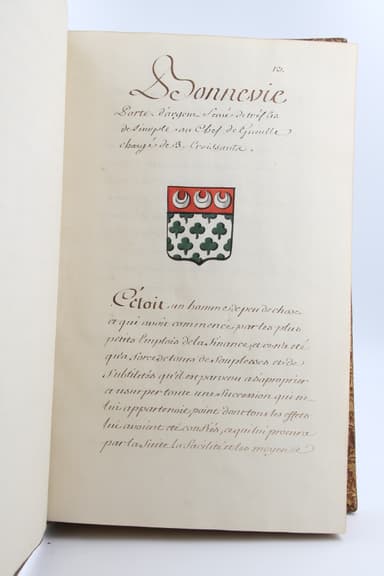 101.
Bonnevie
Porte d'argent Semé de trefles
de Sinople au Chef de Gueulle
chargé de 3. Croissants.
C'étoit un homme de peu de chose
et qui avoit commencé par les plus
petits Emplois de la finance, et
qu'a force de tours de Souplesses et de
Subtilités qu'il en parvenu a s'aproprier
et usurper toute une Succession qui ne
lui appartenoit point dont tous les effets
lui avoient été confiés, ce qui lui procura
par la Suite la facilité et les moyens